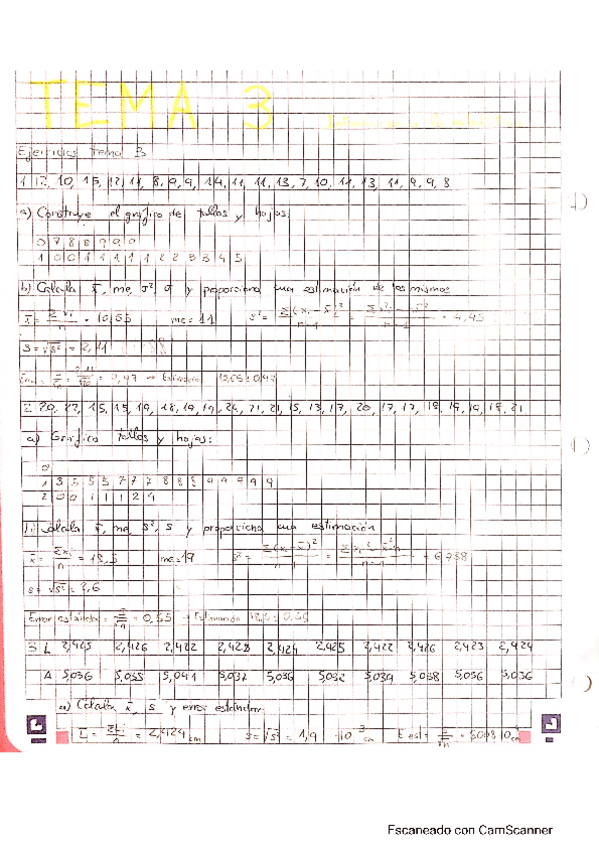 TEMA 3
Ejercicios Tema 3
1 12, 10, 15, 12, 11, 8, 9, 9, 14, 11, 11, 13, 7, 10, 11, 13, 11, 9, 9, 8
a) Construye el gráfico de tallos y hojas
0 7 8 8 9 9 9 9
1 0 0 1 1 1 1 1 1 2 2 3 3 4 5
b) Calcula x̄, me, σ², σ y proporciona una estimación de los mismos
x̄ = Σxi/n = 10,65 me = 11 s² = Σ(xi - x̄)²/n-1 = = 4,45
S = √s² = 2,11
= 0,47 → Estimación 10,65 ± 0,47
2 20, 22, 15, 15, 19, 18, 19, 19, 24, 21, 21, 15, 13, 17, 20, 17, 17, 18, 19, 19, 18, 21
a) Gráfico tallos y hojas:
0
1 3 5 5 5 7 7 7 8 8 8 9 9 9 9 9
2 0 0 1 1 1 2 4
Calcula x̄, me, s², s y proporciona una estimación
x̄ = Σxi/n = 18,5 me = 19 s² = Σ(xi - x̄)²/n-1 = = 6,738
s = √s² = 2,6
Error estándar = = 0,55 → Estimación
3 L 2,425 2,426 2,422 2,428 2,424 2,425 2,422 2,426 2,423 2,424
A 5,036 5,035 5,041 5,037 5,036 5,032 5,039 5,038 5,036 5,036
a) Calcula x̄, s y error estándar
L̄ = ΣLi/n = 2,424 cm s = √s² = 1,9 · 10⁻³ cm E est =
Escaneado con CamScanner